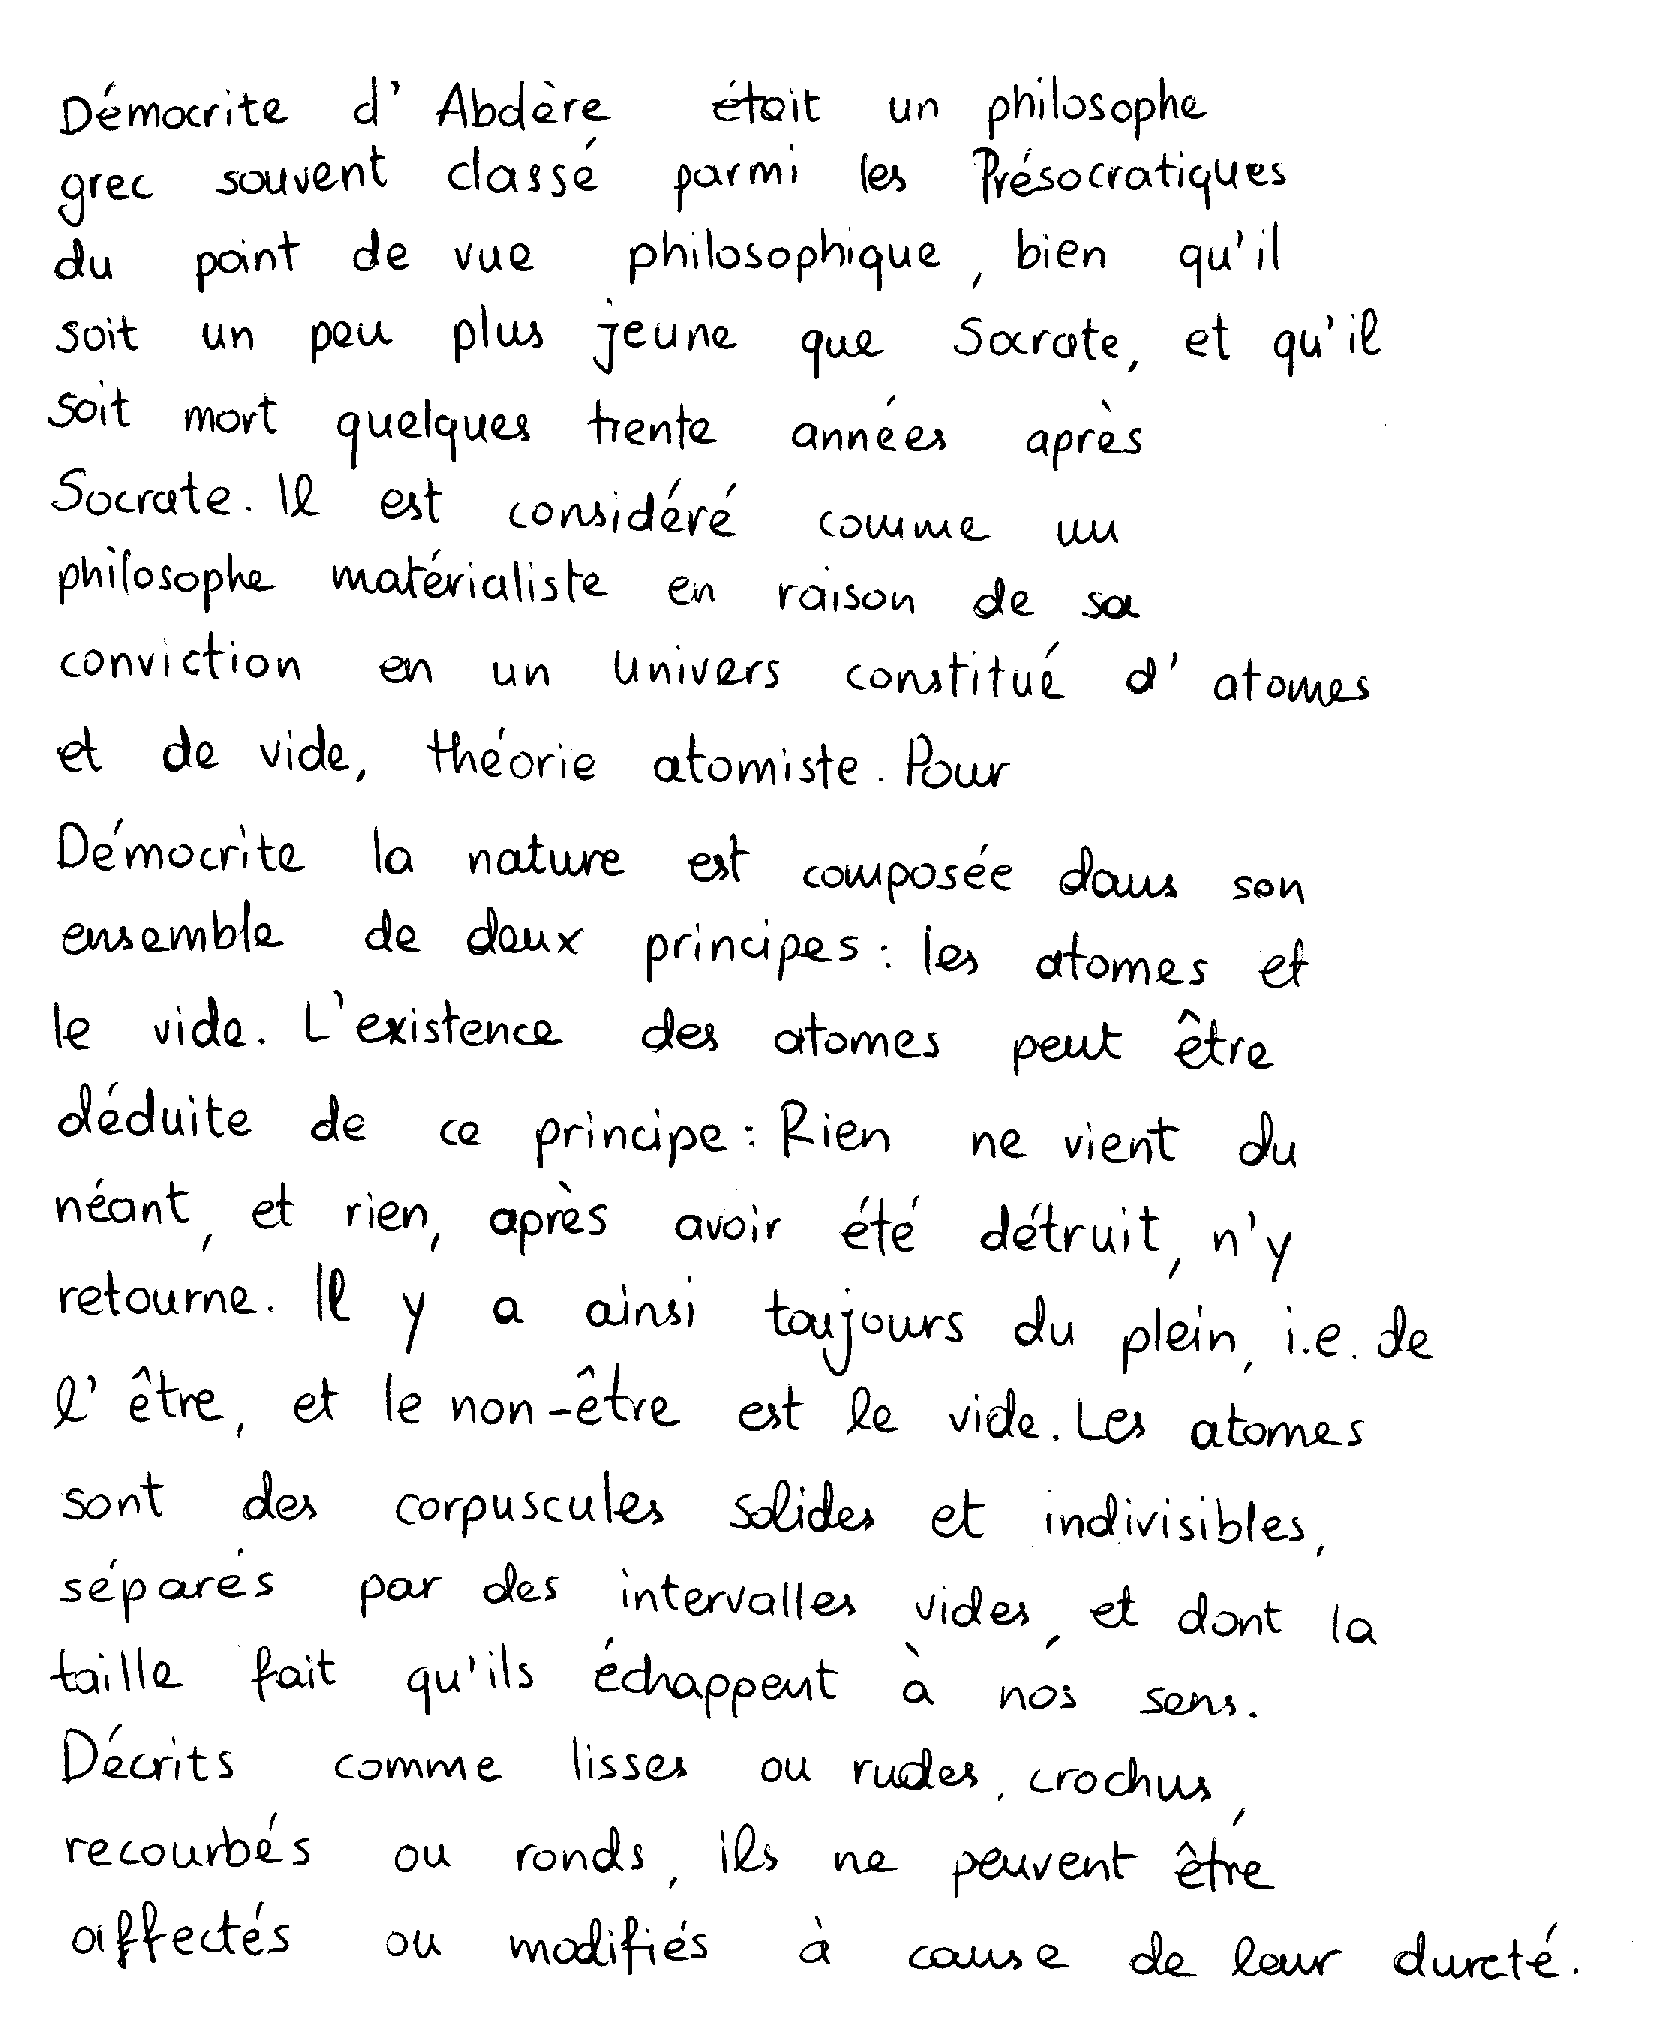 Démocrite d' Abdère était un philosophe
grec souvent classé parmi les Présocratiques
du point de vue philosophique, bien qu'il
soit un peu plus jeune que Socrate, et qu'il
soit mort quelques trente années après
Socrate. Il est considéré comme un
philosophe matérialiste en raison de sa
conviction en un Univers constitué d' atomes
et de vide, théorie atomiste. Pour
Démocrite la nature est composée dans son
ensemble de deux principes : les atomes et
le vide. L'existence des atomes peut être
déduite de ce principe : Rien ne vient du
néant, et rien, après avoir été détruit, n'y
retourne. Il y a ainsi toujours du plein, i.e. de
l' être, et le non-être est le vide. Les atomes
sont des corpuscules solides et indivisibles,
séparés par des intervalles vides, et dont la
taille fait qu'ils échappent à nos sens.
Décrits comme lisses ou rudes, crochus,
recourbés ou ronds, ils ne peuvent être
affectés ou modifiés à cause de leur dureté.